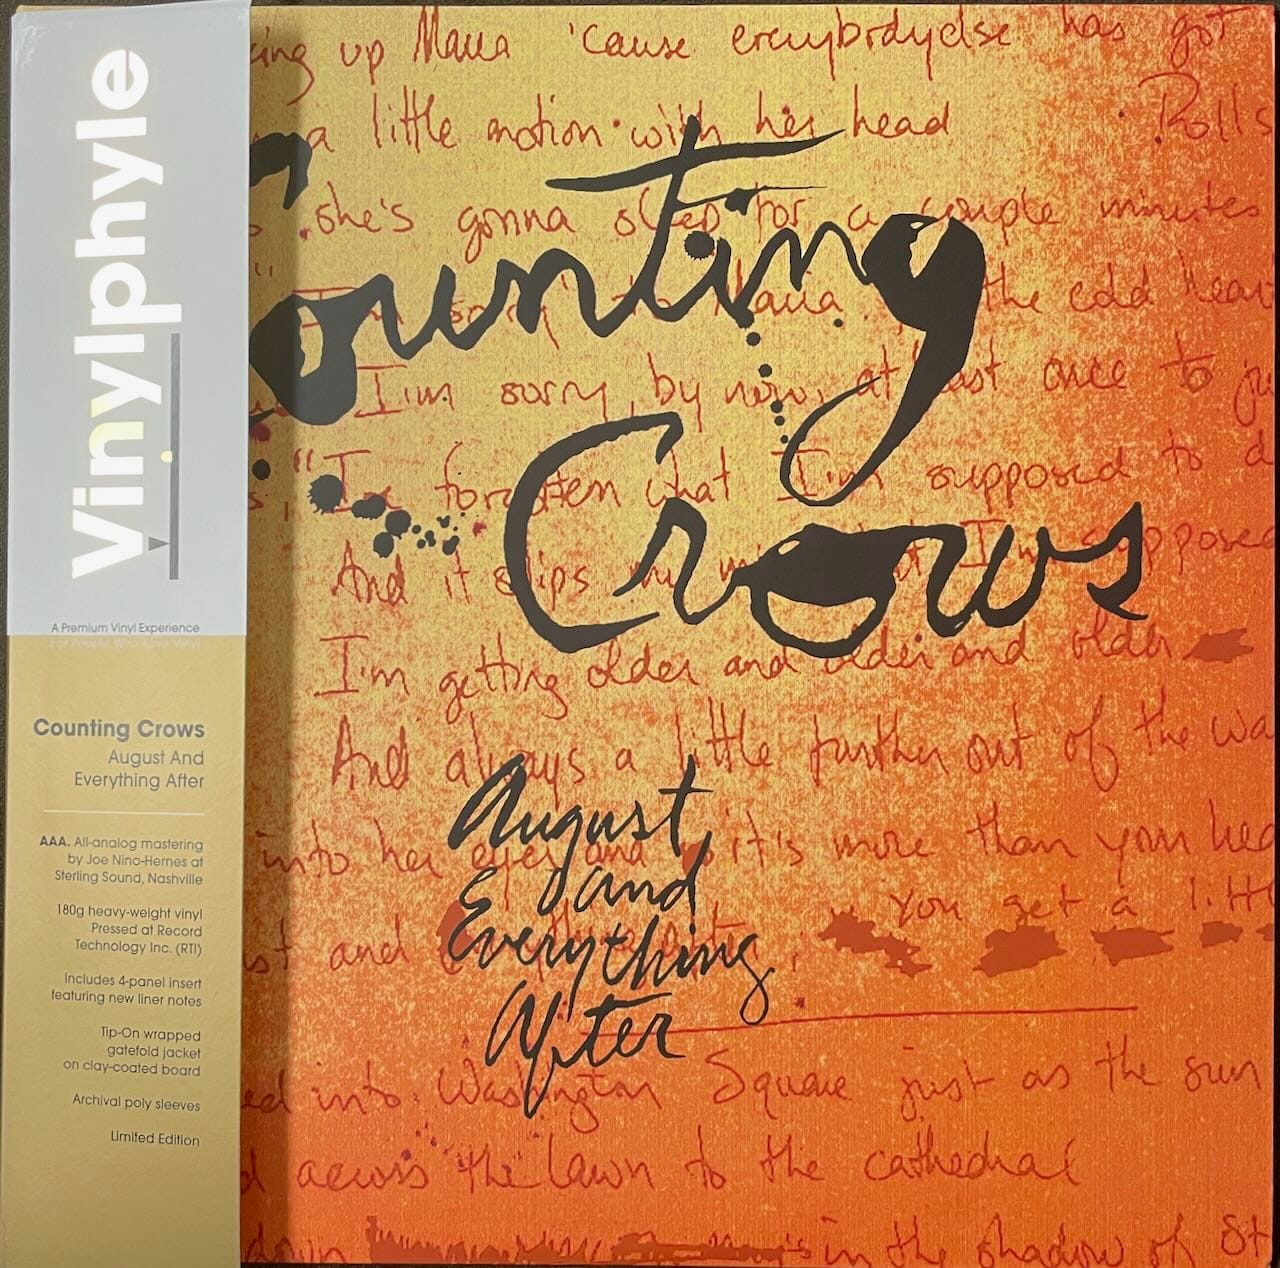 Vinylphyle
A Premium Vinyl Experience
For People Who Love Vinyl
Counting Crows
August And
Everything After
AAA. All-analog mastering
by Joe Nino-Hernes at
Sterling Sound, Nashville
180g heavy-weight vinyl
Pressed at Record
Technology Inc. (RTI)
Includes 4-panel insert
featuring new liner notes
Tip-On wrapped
gatefold jacket
on clay-coated board
Archival poly sleeves
Limited Edition
up Maria 'cause everybodyelse has got
a little motion with her head Rolls
she's gonna sleep for a couple minutes
Counting
Crows
the cold
I'm sorry, by now, at least once to
"I've forgotten what I'm supposed to
And it slips my I'm supposed
I'm getting older and older and older
And always a little further out of the
August
and
Everything
After
into her eyes and it's more than your
and You get a
into Washington Square just as the sun
across the lawn to the cathedral
in the shadow of